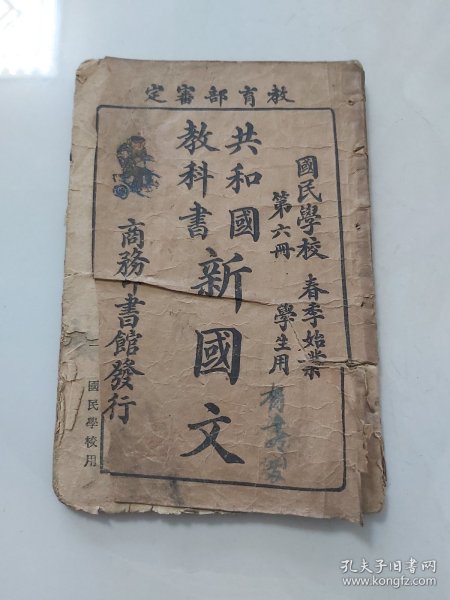 教育部審定
國民學校 春季始業
第六冊 學生用
共和國
教科書
新國文
商務印書館發行
國民學校用
孔夫子旧书网
www.kongfz.com